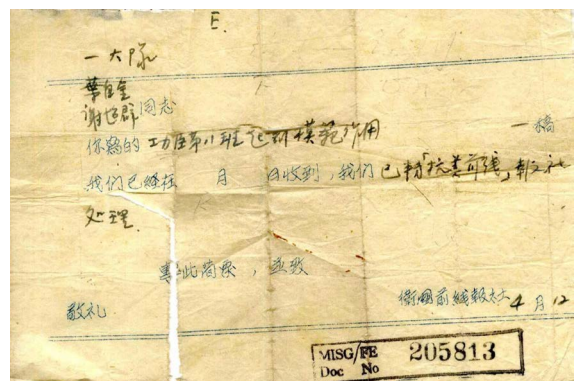 E.
一大隊
葉自全
谢世群同志
你寫的 工兵第八班起了模范作用 一稿
我們已經在 月 日收到，我們 已転「抗美前線」報社
处理.
專此简覆，並致
敬礼
衛國前綫報社 4 月 12
MISG/FE
Doc No 205813